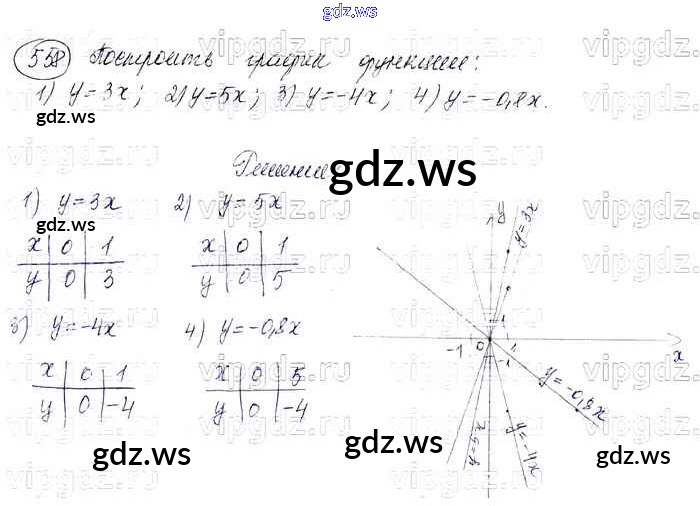 gdz.ws
558 Построить график функции:
1) y=3x; 2) y=5x; 3) y=-4x; 4) y=-0,8x.
gdz.ws
Решение
gdz.ws
1) y=3x 2) y=5x
gdz.ws
x 0 1 x 0 1
y 0 3 y 0 5
3) y=-4x 4) y=-0,8x
x 0 1 x 0 5
y 0 -4 y 0 -4
y
y=3x
1
-1 0 1 x
-1
y=-0,8x
y=5x
y=-4x
gdz.ws
gdz.ws
gdz.ws
vipgdz.ru